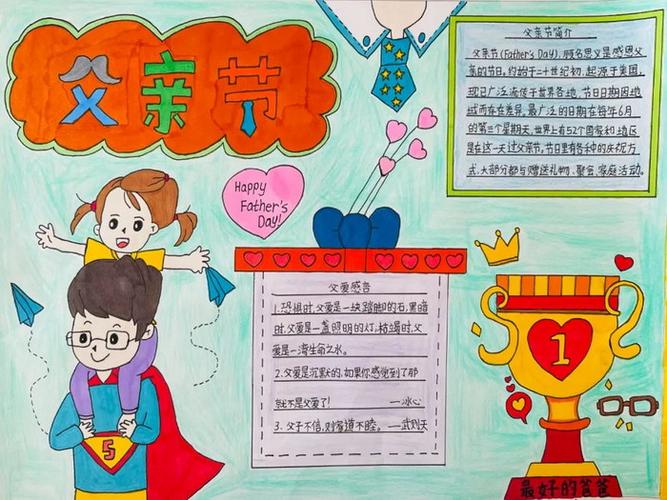 父亲节
父亲节简介
父亲节(Father's Day),顾名思义是感恩父
亲的节日。约始于二十世纪初,起源于美国,
现已广泛流传于世界各地,节日日期因地
域而存在差异。最广泛的日期在每年6月
的第三个星期天,世界上有52个国家和地区
是在这一天过父亲节。节日里有各种的庆祝方
式,大部分都与赠送礼物、聚餐、家庭活动。
Happy
Father's
Day!
父爱感言
1.恐惧时,父爱是一块踏脚的石;黑暗
时,父爱是一盏照明的灯;枯竭时,父
爱是一湾生命之水。
2.父爱是沉默的,如果你感觉到了那
就不是父爱了! —冰心
3.父子不信,则家道不睦。—武则天
1
5
最好的爸爸